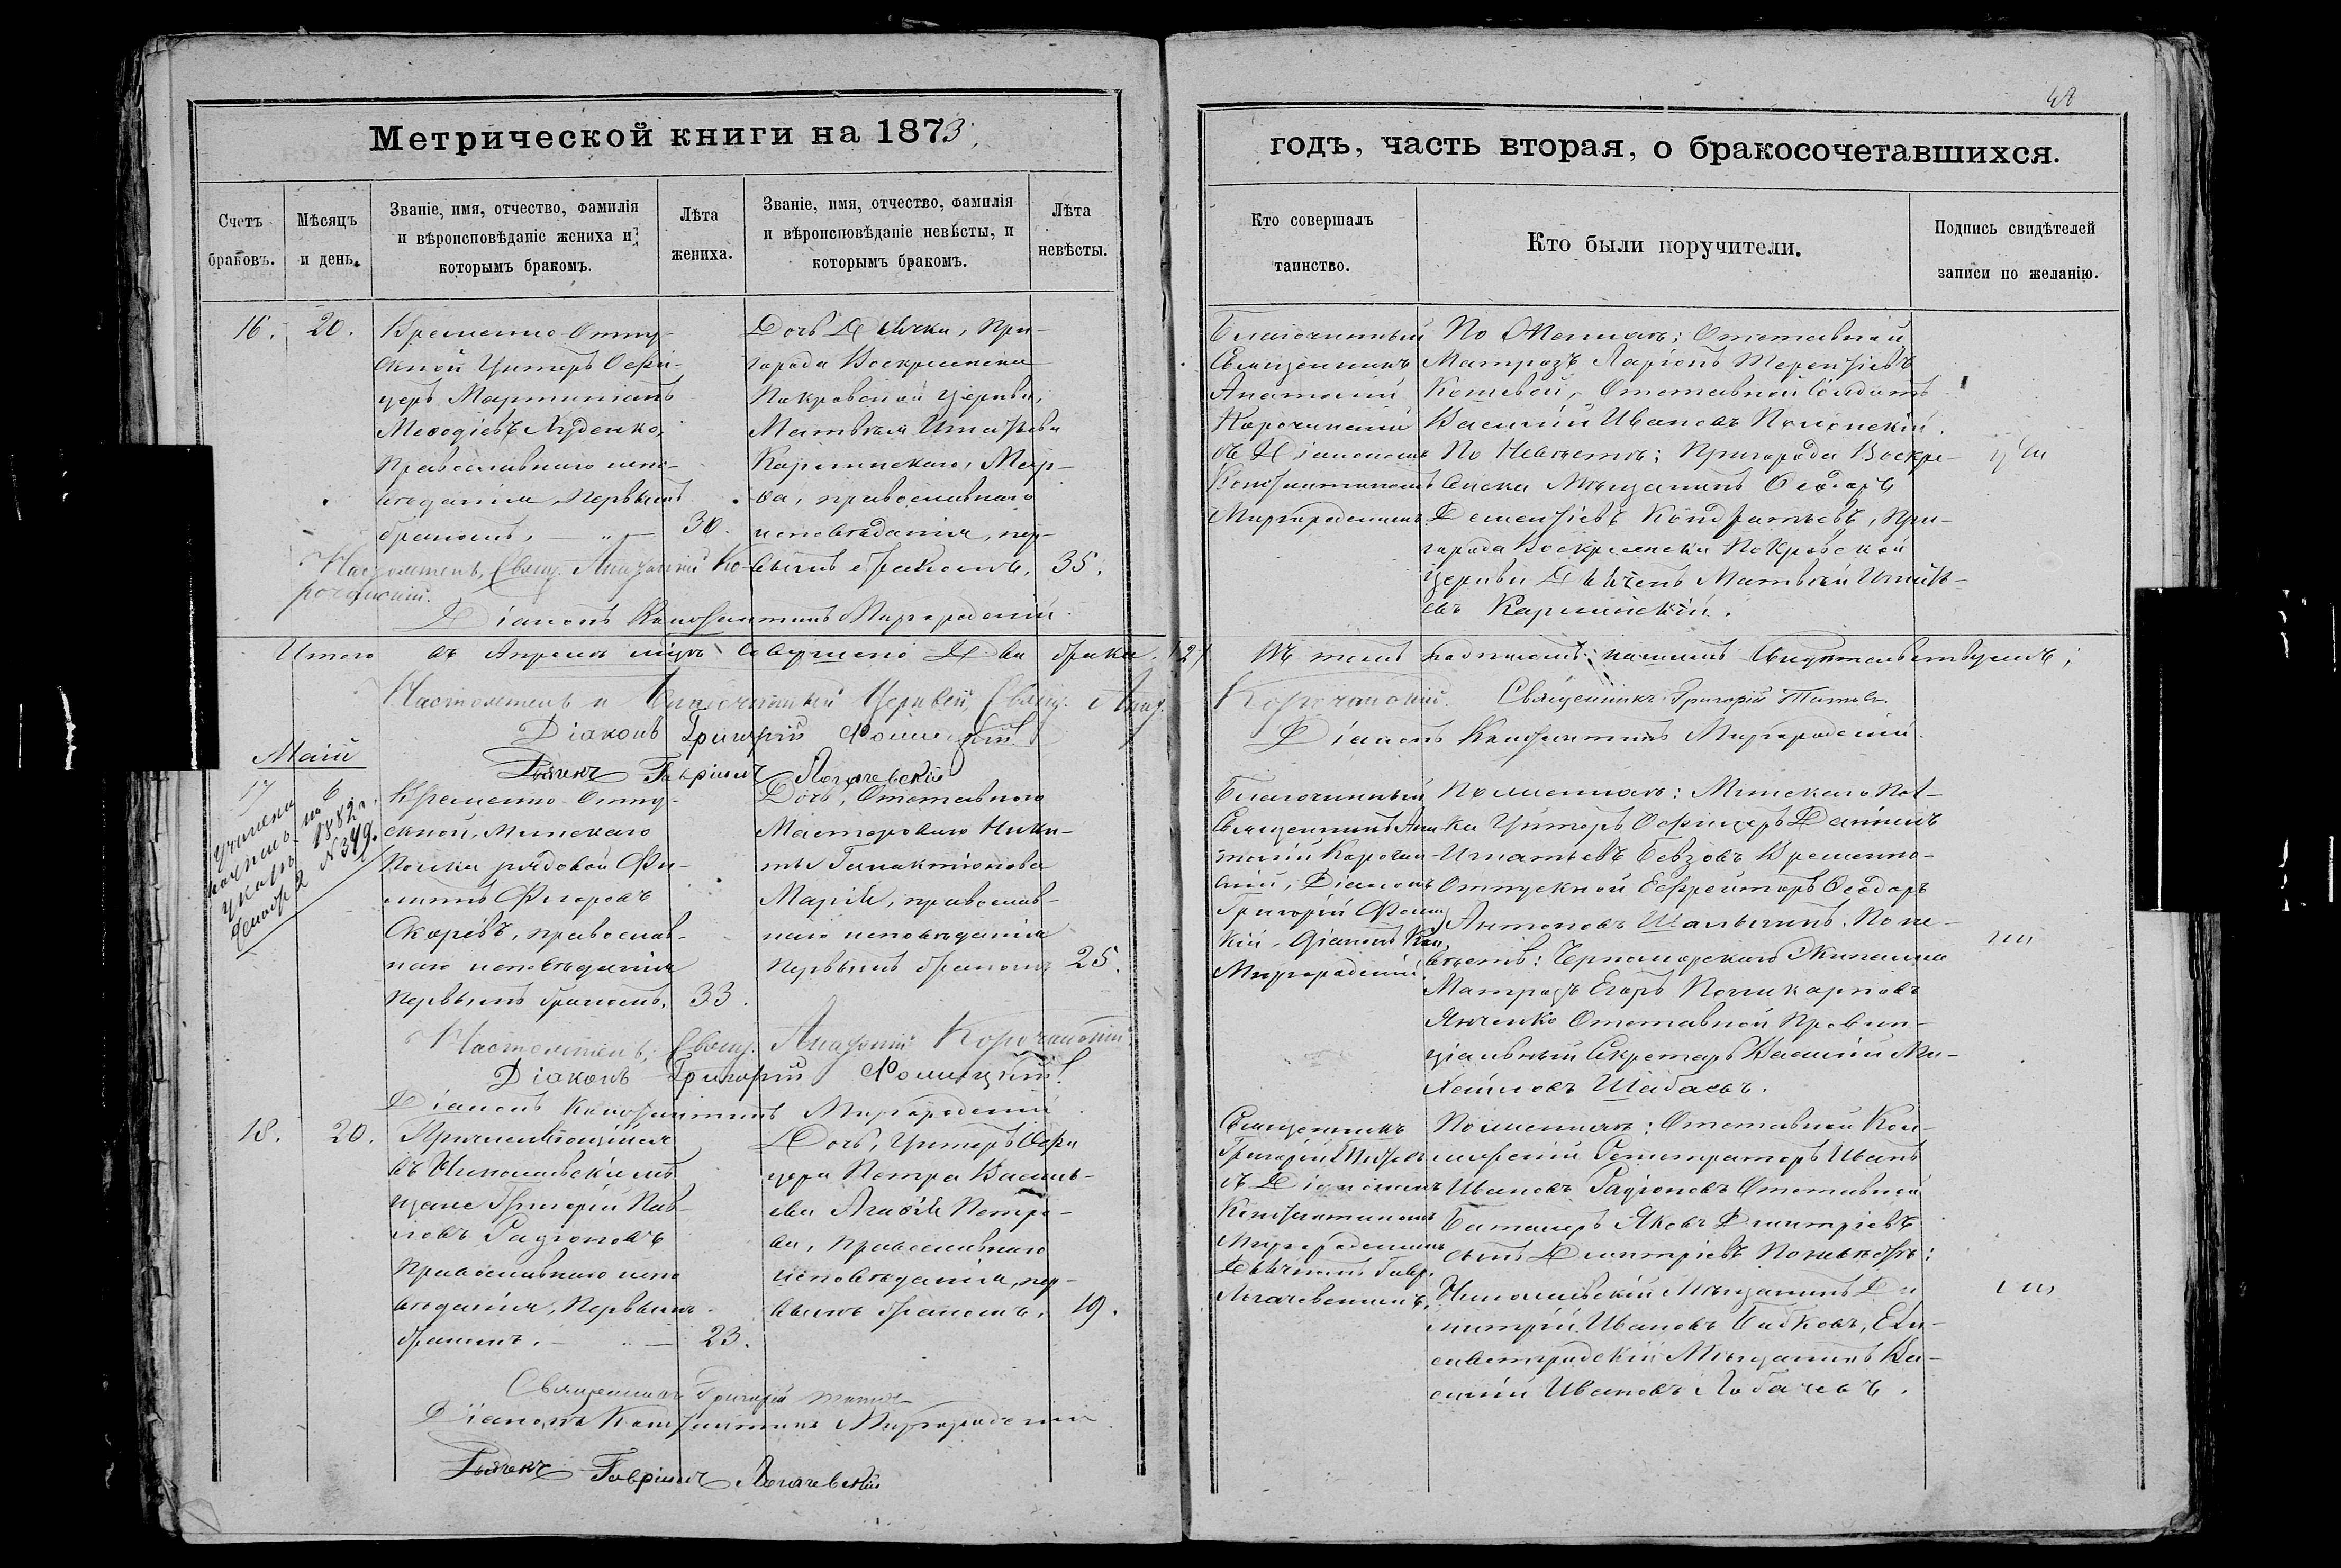 Метрической книги на 1873,
годъ, часть вторая, о бракосочетавшихся.
48
Счетъ браковъ.
Мѣсяцъ и день.
Званіе, имя, отчество, фамилія
и вѣроисповѣданіе жениха и
которымъ бракомъ.
Лѣта
жениха.
Званіе, имя, отчество, фамилія
и вѣроисповѣданіе невѣсты, и
которымъ бракомъ.
Лѣта
невѣсты.
Кто совершалъ
таинство.
Кто были поручители.
Подпись свидѣтелей
записи по желанію.
16.
20.
Временно-Отпу-
скной Унтеръ Офи-
церъ Мартиніанъ
Меѳодіевъ Луденко,
православнаго испо-
вѣданія, первымъ
бракомъ,
30.
Дочь Дьячка, При-
города Воскресенска
Покровской церкви,
Матвѣя Игнатьева
Карпинскаго, Мар-
ѳа, православнаго
исповѣданія, пер-
вымъ бракомъ,
35.
Благочинный
Священникъ
Анатолій
Корочанскій
съ Діакономъ
Константиномъ
Миргородскимъ
По Женихѣ: Отставной
Матрозъ Ларіонъ Терентіевъ
Кошевой, Отставной Солдатъ
Василій Ивановъ
По Невѣстѣ: Пригорода Воскре-
сенска Мѣщанинъ Ѳеодоръ
Дементіевъ Кондратьевъ, При-
города Воскресенска Покровской
Церкви Дьячекъ Матвѣй Игнать-
евъ Карпинскій.
Настоятель, Свящ. Анатолій Ко-
рочанскій.
Діаконъ Константинъ Миргородскій.
Итого въ Апрелѣ мцѣ совершено Два брака. /2/
Въ томъ подписомъ нашимъ свидѣтельствуемъ;
Настоятель и Благочинный Церквей, Свящ. Анат. Корочанскій. Священникъ Григорій Титовъ.
Діаконъ Григорій Фомицкій
Діаконъ Константинъ Миргородскій.
Дьячекъ Гавріилъ Логачевскій
Маій
17
6
учинена
по
указу 1882 г.
Декабр. 2 № 349.
Временно-Отпу-
скной, Минскаго
Полка рядовой Фи-
липъ Ѳедоровъ
православ-
наго исповѣданія
первымъ бракомъ,
33.
Дочь, Отставного
Мастероваго Ники-
ты Галактіонова
Марія, православ-
наго исповѣданія
первымъ бракомъ
25.
Благочинный
Священникъ Ана-
толій Корочан-
скій, Діаконъ
Григорій Фомиц-
кій, Діаконъ Кон.
Миргородскій.
По женихѣ: Минскаго Пол-
ка Унтеръ Офицеръ Даніилъ
Игнатьевъ Бевзовъ Временно-
Отпускной Ефрейторъ Ѳеодоръ
Антоновъ Шалыгинъ. По не-
вѣстѣ: Черноморскаго Экипажа
Матрозъ Егоръ Поликарповъ
Янченко Отставной Провин-
ціальный Секретарь Василій Ми-
хайловъ Шабаевъ.
Настоятель, Свящ. Анатолій Корочанскій.
Діаконъ Григорій Фомицкій.
Діаконъ Константинъ Миргородскій.
18.
20.
Причисляющійся
въ Николаевскіе мѣ-
щане Григорій Пав-
ловъ Радіоновъ
православнаго испо-
вѣданія, первымъ
бракомъ.
23.
Дочь, Унтеръ Офи-
цера Петра Василь-
ева Агаѳія Петро-
ва, православнаго
исповѣданія, пер-
вымъ бракомъ,
19.
Священникъ
Григорій Титовъ
съ Діакономъ
Константиномъ
Миргородскимъ
Дьячкомъ Гавр.
Логачевскимъ.
По женихѣ: Отставной Кол-
лежскій Регистраторъ Иванъ
Ивановъ Радіоновъ Отставной
Баталеръ Яковъ Дмитріевъ
сынъ Дмитріевъ По невѣстѣ:
Николаевскій Мѣщанинъ Ди-
митрій Ивановъ Бабковъ, Ели-
саветградскій Мѣщанинъ Ва-
силій Ивановъ Лобачевъ.
Священникъ Григорій Титовъ
Діаконъ Константинъ Миргородскій.
Дьячекъ Гавріилъ Логачевскій